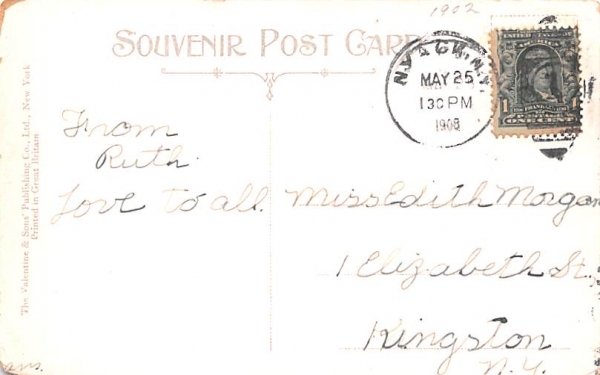 1902
SOUVENIR POST CARD
NYACK, N.Y.
MAY 25
130 PM
1908
UNITED STATES OF AMERICA
1
From
Ruth.
Love to all.
Miss Edith Morgan
1 Elizabeth St.
Kingston
N.Y.
The Valentine & Sons' Publishing Co., Ltd., New York
Printed in Great Britain